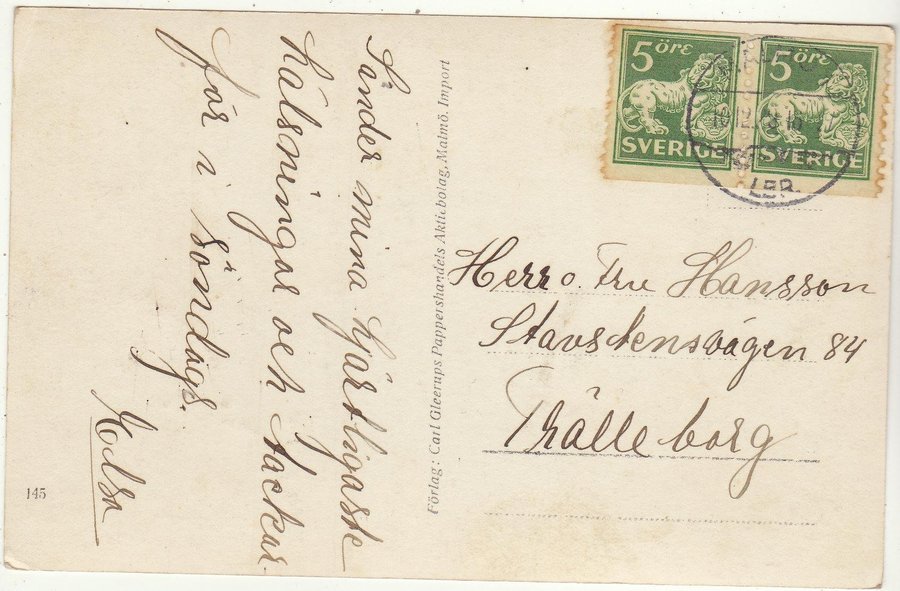 Sänder mina hjärtligaste
hälsningar och tackar
för i söndags.
Elsa
145
Förlag: Carl Gleerups Pappershandels Aktiebolag, Malmö. Import
5 öre
SVERIGE
5 öre
SVERIGE
LBR.
Herr o. Fru Hansson
Stavstensvägen 84
Trälleborg